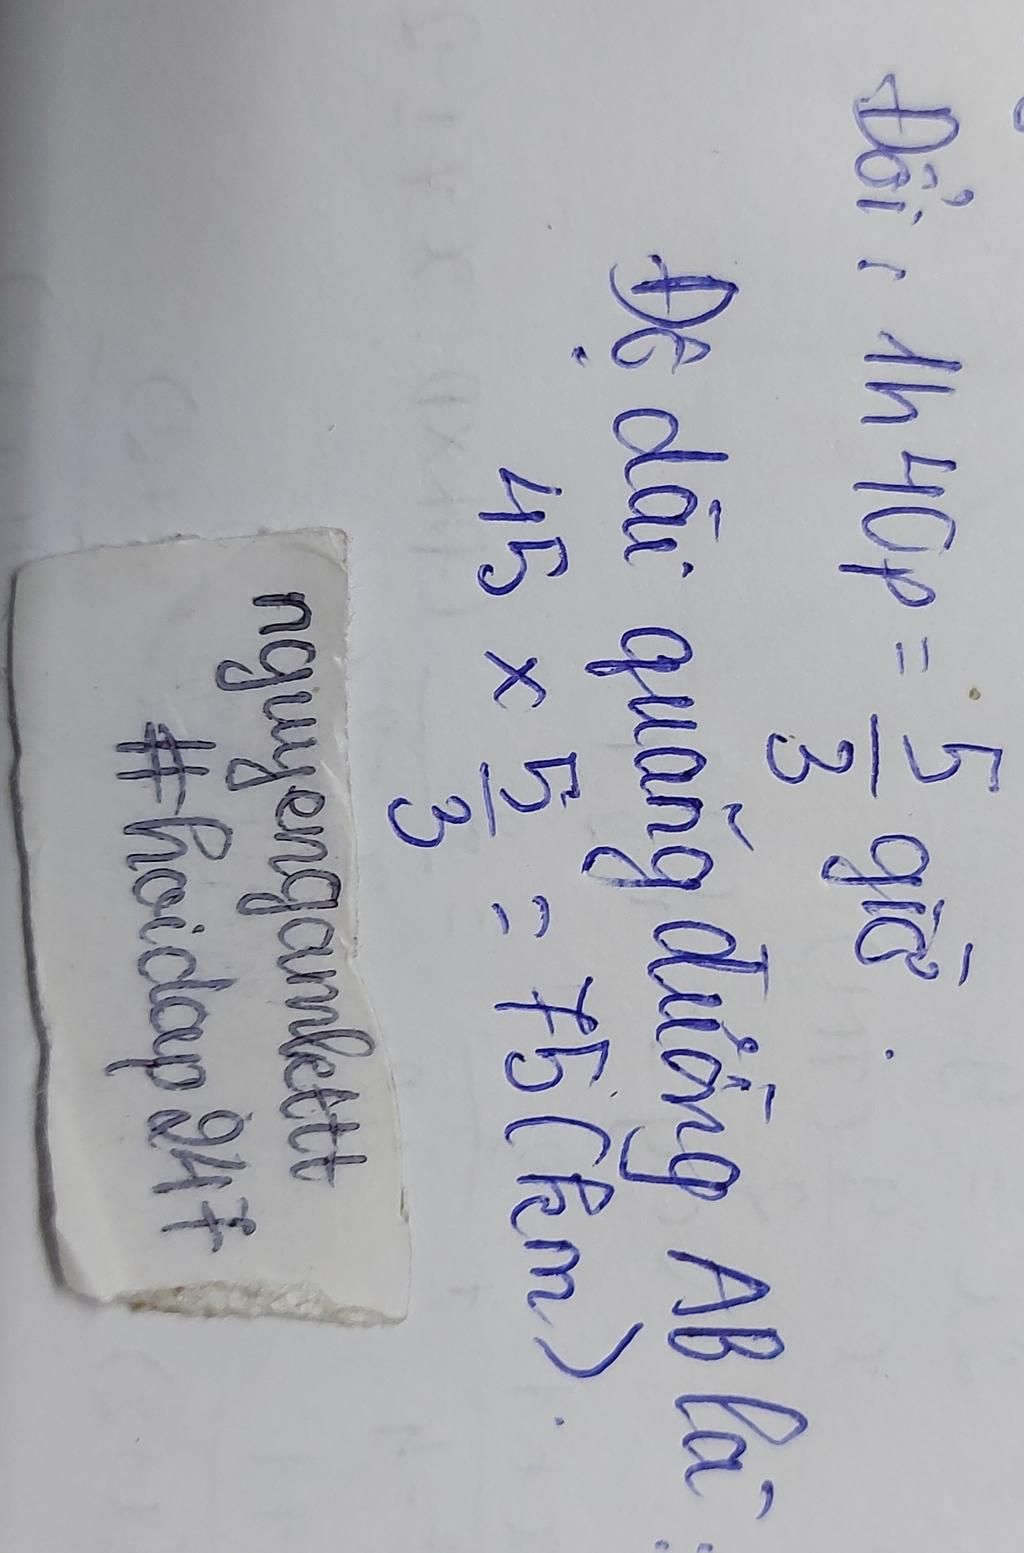 Đổi: 1h40p = 5/3 giờ.
Độ dài quãng đường AB là:
45 × 5/3 = 75 (km).
nguyengamkttt
#hoidap247